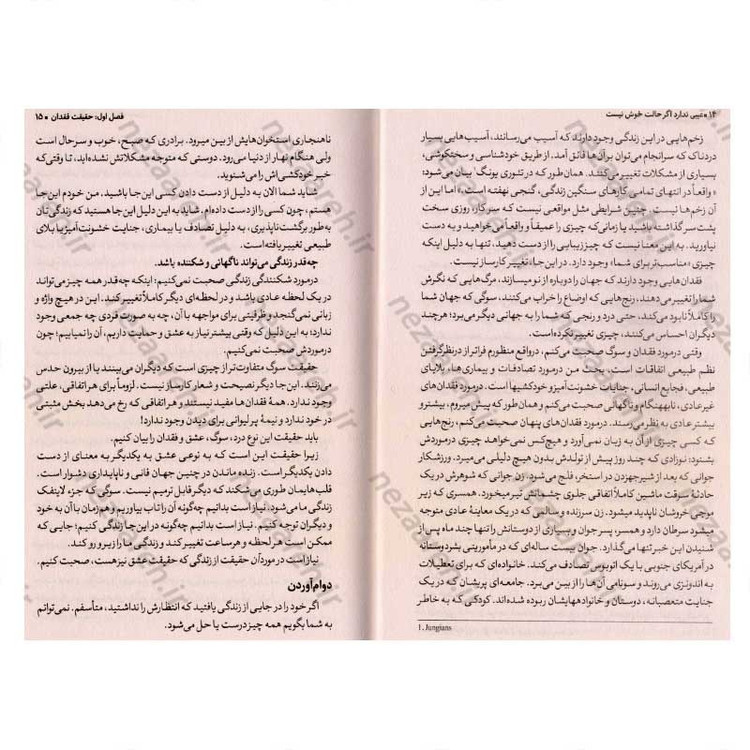 ۱۴ ■ عیبی ندارد اگر حالت خوش نیست
زخم‌هایی در این زندگی وجود دارند که آسیب می‌رسانند، آسیب‌هایی بسیار
دردناک که سرانجام می‌توان بر آن‌ها فائق آمد. از طریق خودشناسی و سختکوشی،
بسیاری از مشکلات تغییر می‌کنند. همان طور که در تئوری یونگ¹ بیان می‌شود:
«واقعاً در انتهای تمامی کارهای سنگین زندگی، گنجی نهفته است.» اما این از
آن زخم‌ها نیست. چنین شرایطی مثل مواقعی نیست که سر کار، روزی سخت
پشت‌سر گذاشته باشید یا زمانی که چیزی را عمیقاً و واقعاً می‌خواهید و به دست
نیاورید. به این معنا نیست که چیز زیبایی را از دست دهید، تنها به دلیل اینکه
چیزی «مناسب‌تر برای شما» وجود دارد. در این جا، تغییر کارساز نیست.
فقدان‌هایی وجود دارند که جهان را دوباره از نو میسازند. مرگ‌هایی که نگرش
شما را تغییر می‌دهند، رنج‌هایی که اوضاع را خراب می‌کنند، سوگی که جهان شما
را کاملاً نابود می‌کند، حتی درد و رنجی که شما را به جهانی دیگر می‌برد؛ هرچند
دیگران احساس می‌کنند، چیزی تغییر نکرده است.
وقتی درمورد فقدان و سوگ صحبت می‌کنم، درواقع منظورم فراتر از درنظر گرفتن
نظم طبیعی اتفاقات است. بحث من درمورد تصادفات و بیماری‌ها، بلایای
طبیعی، فجایع انسانی، جنایات خشونت‌آمیز و خودکشیها است. درمورد فقدان‌های
غیرعادی، نابهنگام و ناگهانی صحبت می‌کنم و همان‌طور که پیش میروم، بیشتر و
بیشتر عادی به نظر می‌رسند. درمورد فقدان‌های پنهان صحبت می‌کنم، رنج‌هایی
که کسی چیزی از آن به زبان نمی‌آورد و هیچ‌کس نمی‌خواهد چیزی درموردش
بشنود: نوزادی که چند روز پیش از تولدش بدون هیچ دلیلی می‌میرد. ورزشکار
جوانی که بعد از شیرجه‌زدن در استخر، فلج می‌شود. زن جوانی که شوهرش در یک
حادثهٔ سرقت ماشین کاملاً اتفاقی جلوی چشمانش تیر میخورد. همسری که زیر
موجی خروشان ناپدید میشود. زن سرزنده و سالمی که در یک معاینهٔ عادی متوجه
میشود سرطان دارد و همسر، پسر جوان و بسیاری از دوستانش را تنها چند ماه پس از
شنیدن این خبر تنها می‌گذارد. جوان بیست ساله‌ای که در مأموریتی بشردوستانه
در آمریکای جنوبی با یک اتوبوس تصادف می‌کند. خانواده‌ای که برای تعطیلات
به اندونزی می‌روند و سونامی آن‌ها را از بین می‌برد. جامعه‌ای پریشان که در یک
جنایت متعصبانه، دوستان و خانواده‌هایشان ربوده شده‌اند. کودکی که به خاطر
1. Jungians
فصل اول: حقیقت فقدان ■ ۱۵
ناهنجاری استخوان‌هایش از بین میرود. برادری که صبح، خوب و سرحال است
ولی هنگام نهار از دنیا می‌رود. دوستی که متوجه مشکلاتش نشده‌اید، تا وقتی که
خبر خودکشی‌اش را می‌شنوید.
شاید شما الان به دلیل از دست دادن کسی این‌جا باشید. من خودم این‌جا
هستم، چون کسی را از دست داده‌ام. شاید به این دلیل این‌جا هستید که زندگی تان
به‌طور برگشت‌ناپذیری، به دلیل تصادف یا بیماری، جنایت خشونت‌آمیز یا بلای
طبیعی تغییر یافته است.
چه‌قدر زندگی می‌تواند ناگهانی و شکننده باشد.
درمورد شکنندگی زندگی صحبت نمی‌کنیم: اینکه چه‌قدر همه چیز می‌تواند
در یک لحظه عادی باشد و در لحظه‌ای دیگر کاملاً تغییر کند. این در هیچ واژه و
زبانی نمی‌گنجد و ظرفیتی برای مواجهه با آن، چه به صورت فردی چه جمعی وجود
ندارد؛ به این دلیل که وقتی بیشتر نیاز به عشق و حمایت داریم، آن را نمیابیم؛ چون
درموردش صحبت نمی‌کنیم.
حقیقت سوگ متفاوت‌تر از چیزی است که دیگران می‌بینند یا از بیرون حدس
می‌زنند. این‌جا دیگر نصیحت و شعار کارساز نیست. لزوماً برای هر اتفاقی، علتی
وجود ندارد. همهٔ فقدان‌ها مفید نیستند و هر اتفاقی که رخ می‌دهد بخش مثبتی
در خود ندارد و نیمهٔ پر لیوانی برای دیدن وجود ندارد!
باید حقیقت این نوع درد، سوگ، عشق و فقدان را بیان کنیم.
زیرا حقیقت این است که به نوعی عشق به یکدیگر به معنای از دست
دادن یکدیگر است. زنده ماندن در چنین جهان فانی و ناپایداری دشوار است.
قلب‌هایمان طوری می‌شکند که دیگر قابل ترمیم نیست. سوگی که جزء لاینفک
زندگی ما می‌شود. نیاز است بدانیم چه‌گونه آن را تاب بیاوریم و هم‌زمان با آن به خود
و دیگران توجه کنیم. نیاز است بدانیم چه‌گونه در این‌جا زندگی کنیم؛ جایی که
ممکن است هر لحظه و هر ساعت تغییر کند و زندگی ما را زیر و رو کند.
نیاز است درمورد آن حقیقت از زندگی که حقیقت عشق نیز هست، صحبت کنیم.
دوام‌آوردن
اگر خود را در جایی از زندگی یافتید که انتظارش را نداشتید، متأسفم. نمی‌توانم
به شما بگویم همه چیز درست یا حل می‌شود.
nezaareh.ir